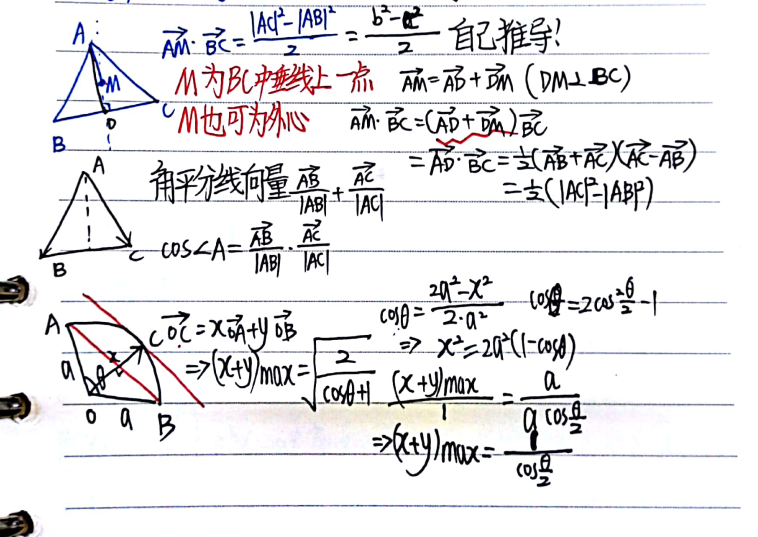 A M B D C
$\overrightarrow{AM}\cdot\overrightarrow{BC}=\frac{|AC|^2-|AB|^2}{2}=\frac{b^2-c^2}{2}$ 自己推导!
M为BC中垂线上一点 $\overrightarrow{AM}=\overrightarrow{AD}+\overrightarrow{DM}$ (DM⊥BC)
M也可为外心 $\overrightarrow{AM}\cdot\overrightarrow{BC}=(\overrightarrow{AD}+\overrightarrow{DM})\cdot\overrightarrow{BC}$
$=\overrightarrow{AD}\cdot\overrightarrow{BC}=\frac{1}{2}(\overrightarrow{AB}+\overrightarrow{AC})(\overrightarrow{AC}-\overrightarrow{AB})$
$=\frac{1}{2}(|AC|^2-|AB|^2)$
A B C
角平分线向量 $\frac{\overrightarrow{AB}}{|AB|}+\frac{\overrightarrow{AC}}{|AC|}$
$\cos\angle A=\frac{\overrightarrow{AB}}{|AB|}\cdot\frac{\overrightarrow{AC}}{|AC|}$
A C a θ x O a B
$\overrightarrow{OC}=x\overrightarrow{OA}+y\overrightarrow{OB}$
$\Rightarrow(x+y)max=\sqrt{\frac{2}{\cos\theta+1}}$
$\cos\theta=\frac{2a^2-x^2}{2\cdot a^2}$ $\cos\theta=2\cos^2\frac{\theta}{2}-1$
$\Rightarrow x^2=2a^2(1-\cos\theta)$
$\frac{(x+y)max}{1}=\frac{a}{a\cos\frac{\theta}{2}}$
$\Rightarrow(x+y)max=\frac{1}{\cos\frac{\theta}{2}}$